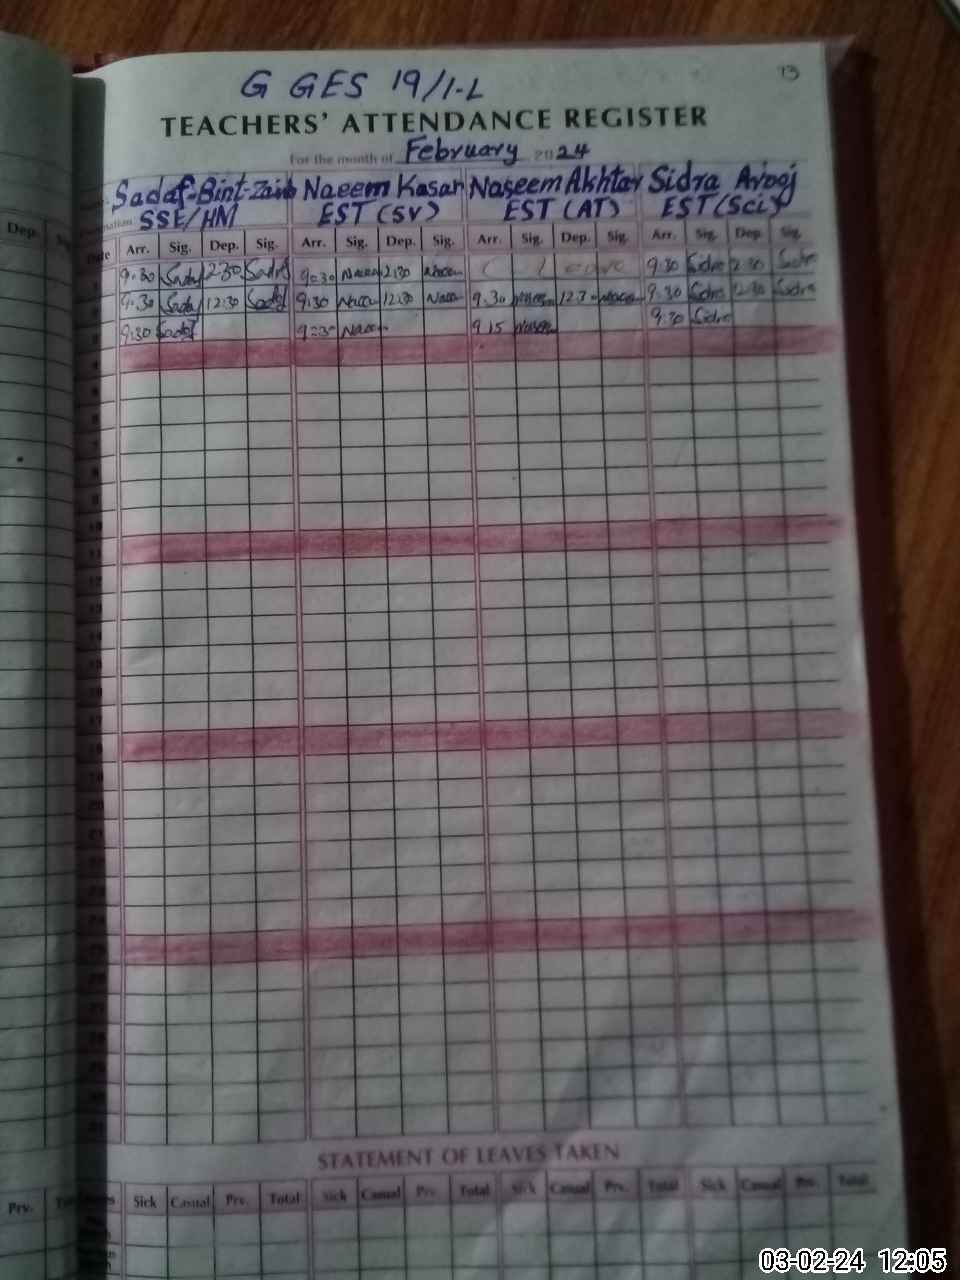 13
G GES 19/1-L
TEACHERS' ATTENDANCE REGISTER
For the month of February 2024
Sadaf-Bint-Zaib Naeem Kasar Naseem Akhtar Sidra Arooj
SSE/HM EST (SV) EST (AT) EST (Sci)
Dep.
Date Arr. Sig. Dep. Sig. Arr. Sig. Dep. Sig. Arr. Sig. Dep. Sig. Arr. Sig. Dep. Sig.
9:30 Sadaf 2:30 Sadaf 9:30 2:30 9:30 Sidra 2:30 Sidra
9:30 Sadaf 12:30 Sadaf 9:30 12:30 9:30 12:30 9:30 Sidra 12:30 Sidra
9:30 Sadaf 9:30 9:15 9:30 Sidra
STATEMENT OF LEAVES TAKEN
Prv. Sick Casual Prv. Total Sick Casual Prv. Total Sick Casual Prv. Total Sick Casual Prv. Total
03-02-24 12:05